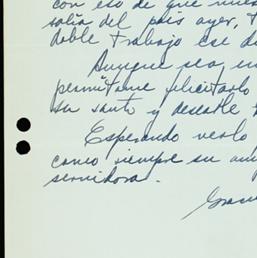 con eso de que
salía del país ayer,
doble trabajo ese
Aunque sea
permítame felicitarlo
su santo y desearle
Esperando verlo
como siempre su
servidora.